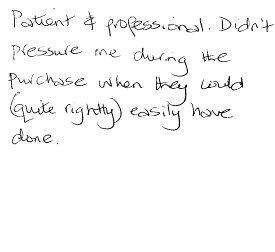 Patient & professional. Didn't
pressure me during the
purchase when they could
(quite rightly) easily have
done.